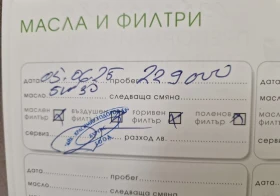 МАСЛА И ФИЛТРИ
дата 05.06.25 пробег 229000
масло 5W30 следваща смяна
маслен филтър въздушен филтър горивен филтър поленов филтър
сервиз разход лв.
дата пробег
масло следваща смяна